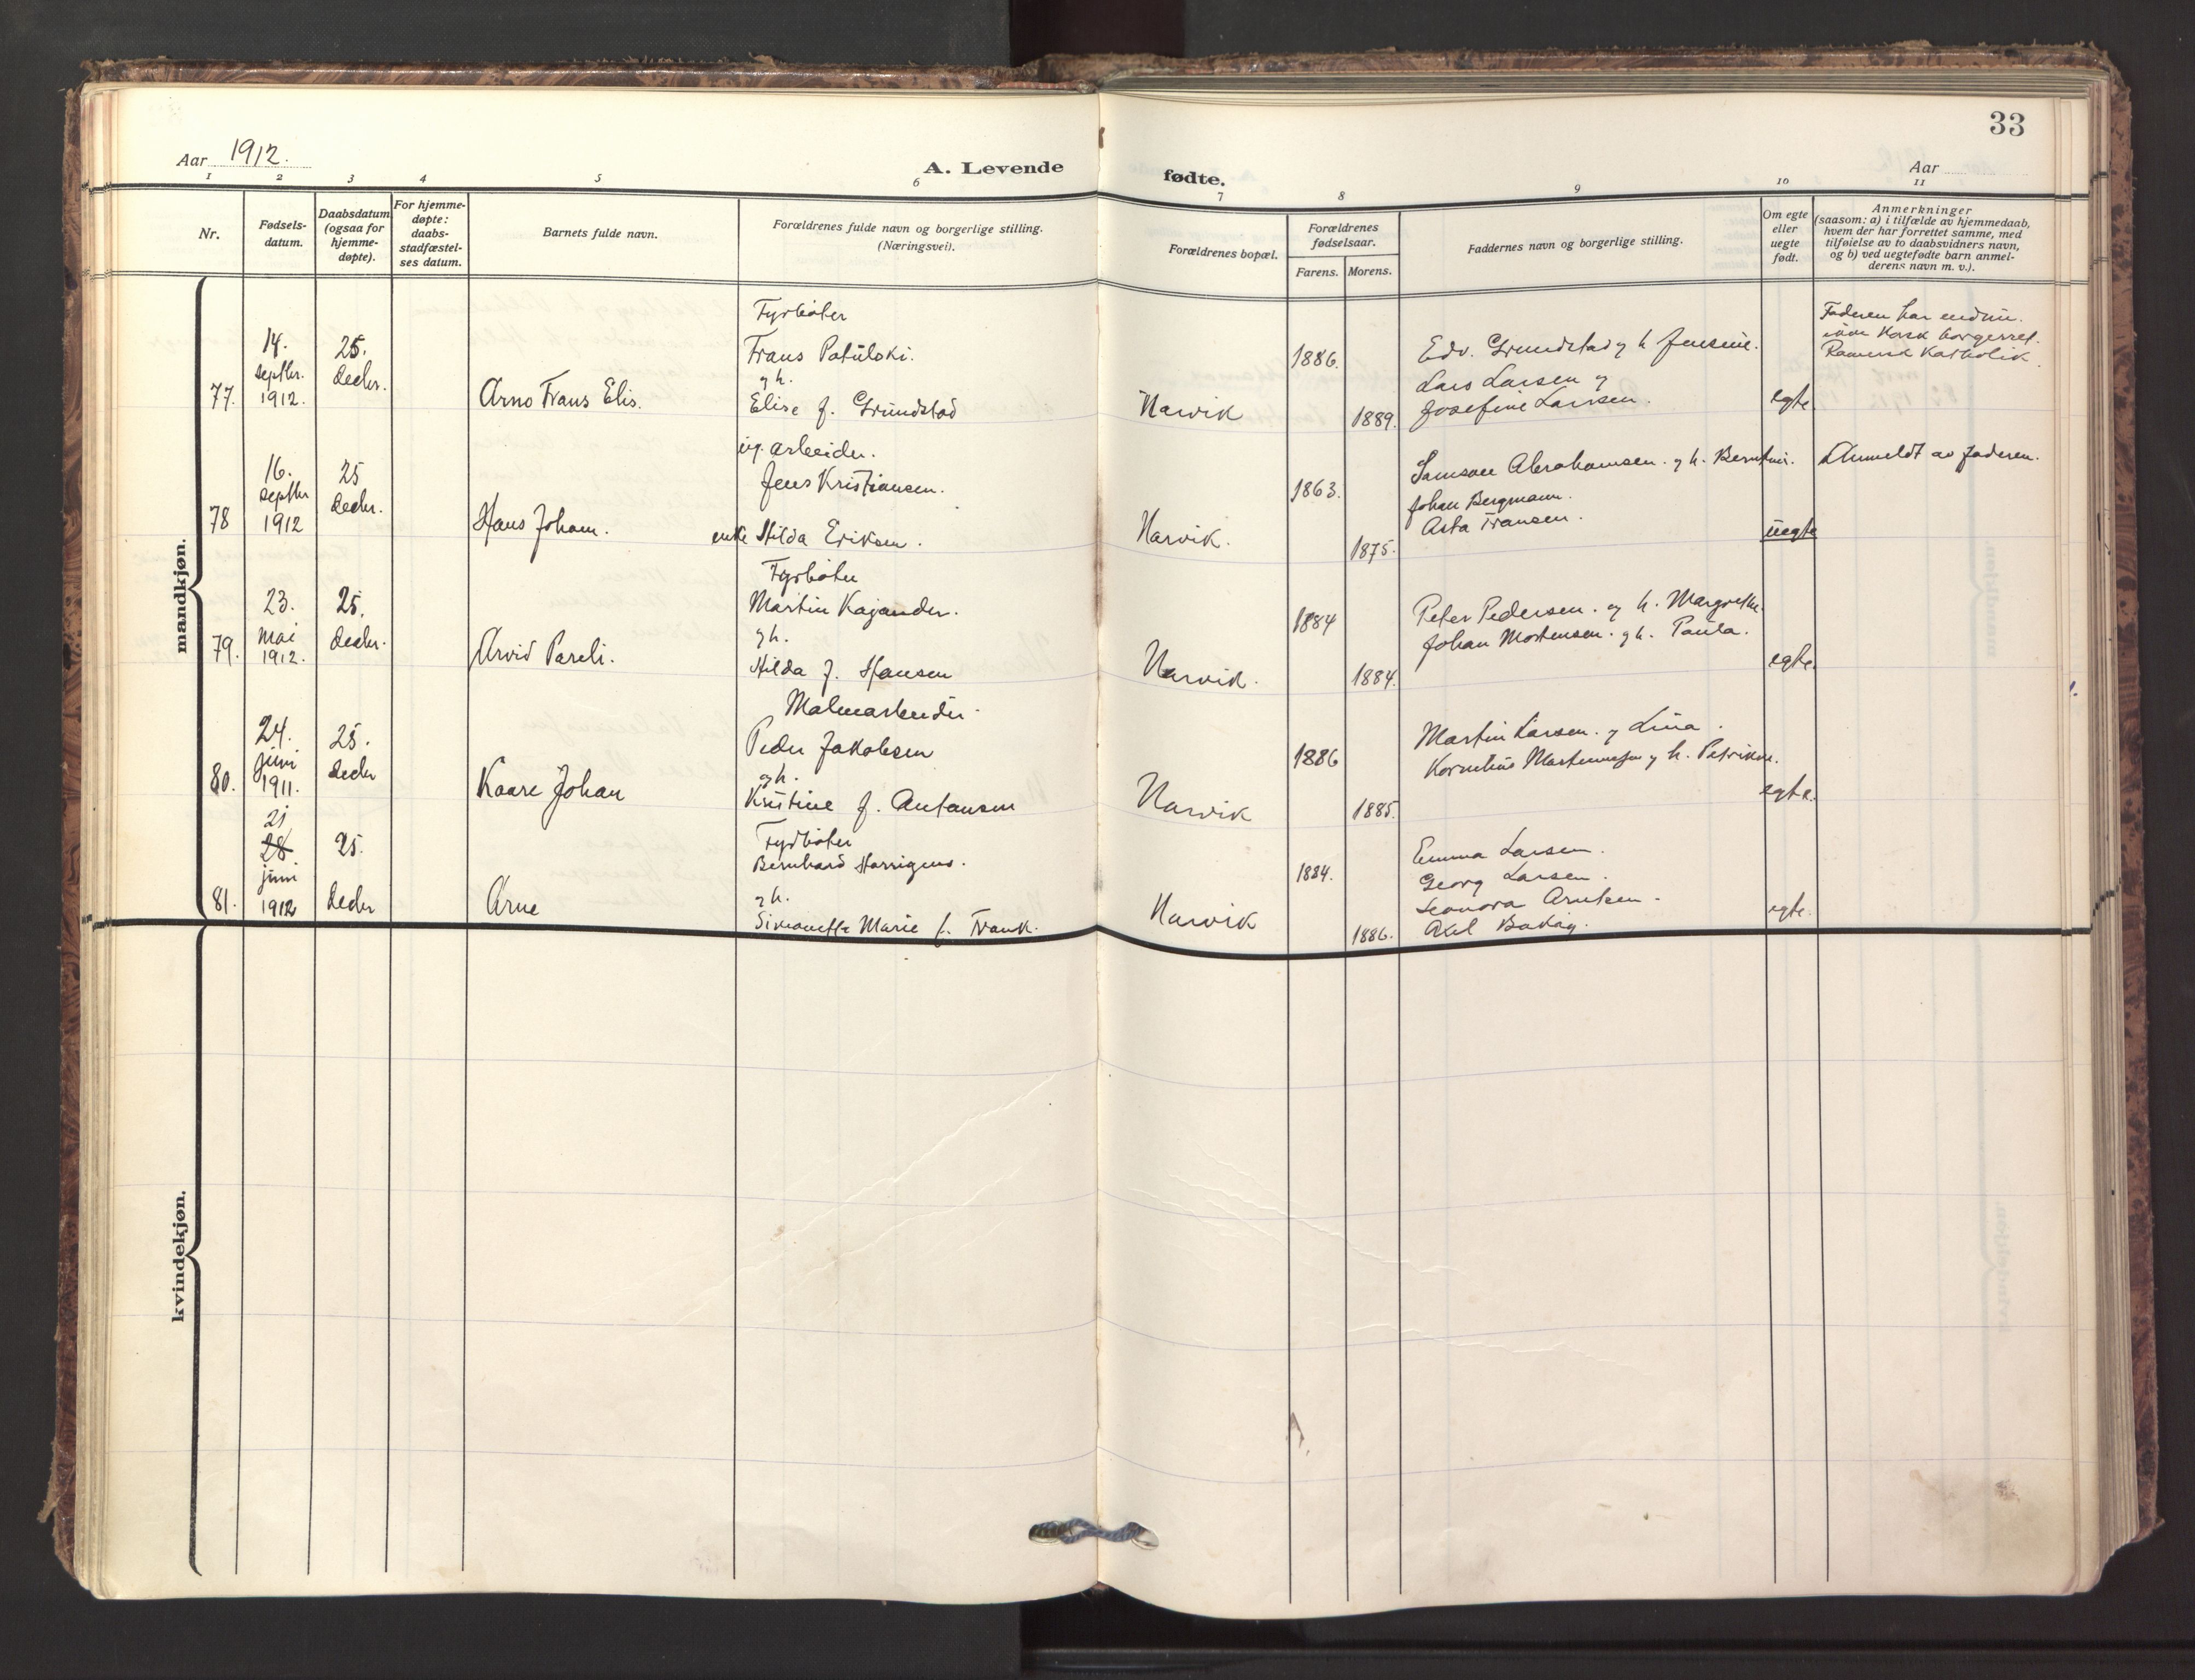 33
Aar 1912.
A. Levende fødte.
Aar
1 2 3 4 5 6 7 8 9 10 11
Nr.
Fødsels-
datum.
Daabsdatum
(ogsaa for
hjemme-
døpte).
For hjemme-
døpte:
daabs-
stadfæstel-
ses datum.
Barnets fulde navn.
Forældrenes fulde navn og borgerlige stilling.
(Næringsvei).
Forældrenes bopæl.
Forældrenes
fødselsaar.
Farens. Morens.
Faddernes navn og borgerlige stilling.
Om egte
eller
uegte
født.
Anmerkninger
(saasom: a) i tilfælde av hjemmedaab,
hvem der har forrettet samme, med
tilføielse av to daabsvidners navn,
og b) ved uegtefødte barn anmel-
derens navn m. v.).
mandkjøn.
77.
14.
septbr.
1912.
25.
decbr.
Arno Frans Elis.
Fyrbøter
Frans Patulski.
og h.
Elise f. Grundstad
Narvik
1886.
1889.
Edv. Grundstad og h Jensine.
Lars Larsen og
Josefine Larsen.
egte
Faderen har endnu
ikke Norsk borgerret.
Romersk Katholik.
78
16.
septbr
1912
25
decbr.
Hans Johan.
ug. arbeider.
Jens Kristiansen.
enke Hilda Eriksen.
Narvik.
1863.
1875.
Samson Abrahamsen. og h. Berntine.
Johan Bergmann.
Asta Fransen.
uegte
Anmeldt av faderen.
79.
23.
mai
1912.
25.
decbr.
Arvid Pareli.
Fyrbøter
Martin Kajander.
og h.
Hilda f. Hansen
Narvik.
1884
1884.
Peter Pedersen. og h. Margrethe.
Johan Mortensen. og h. Paula.
egte.
80.
24.
juni
1911.
25.
decbr
Kaare Johan
Malmarbeider.
Peder Jakobsen
og h.
Kristine f. Antonsen
Narvik
1886
1885.
Martin Larsen. og Lina.
Kornelius Martinussen og h. Petrikke.
egte.
81.
21
28
juni
1912
25.
decbr
Arne
Fyrbøter
Bernhard
og h.
Marie f. Frank.
Narvik
1884.
1886.
Emma Larsen.
Georg Larsen.
Leonora Arntsen.
Axel
egte.
kvindekjøn.